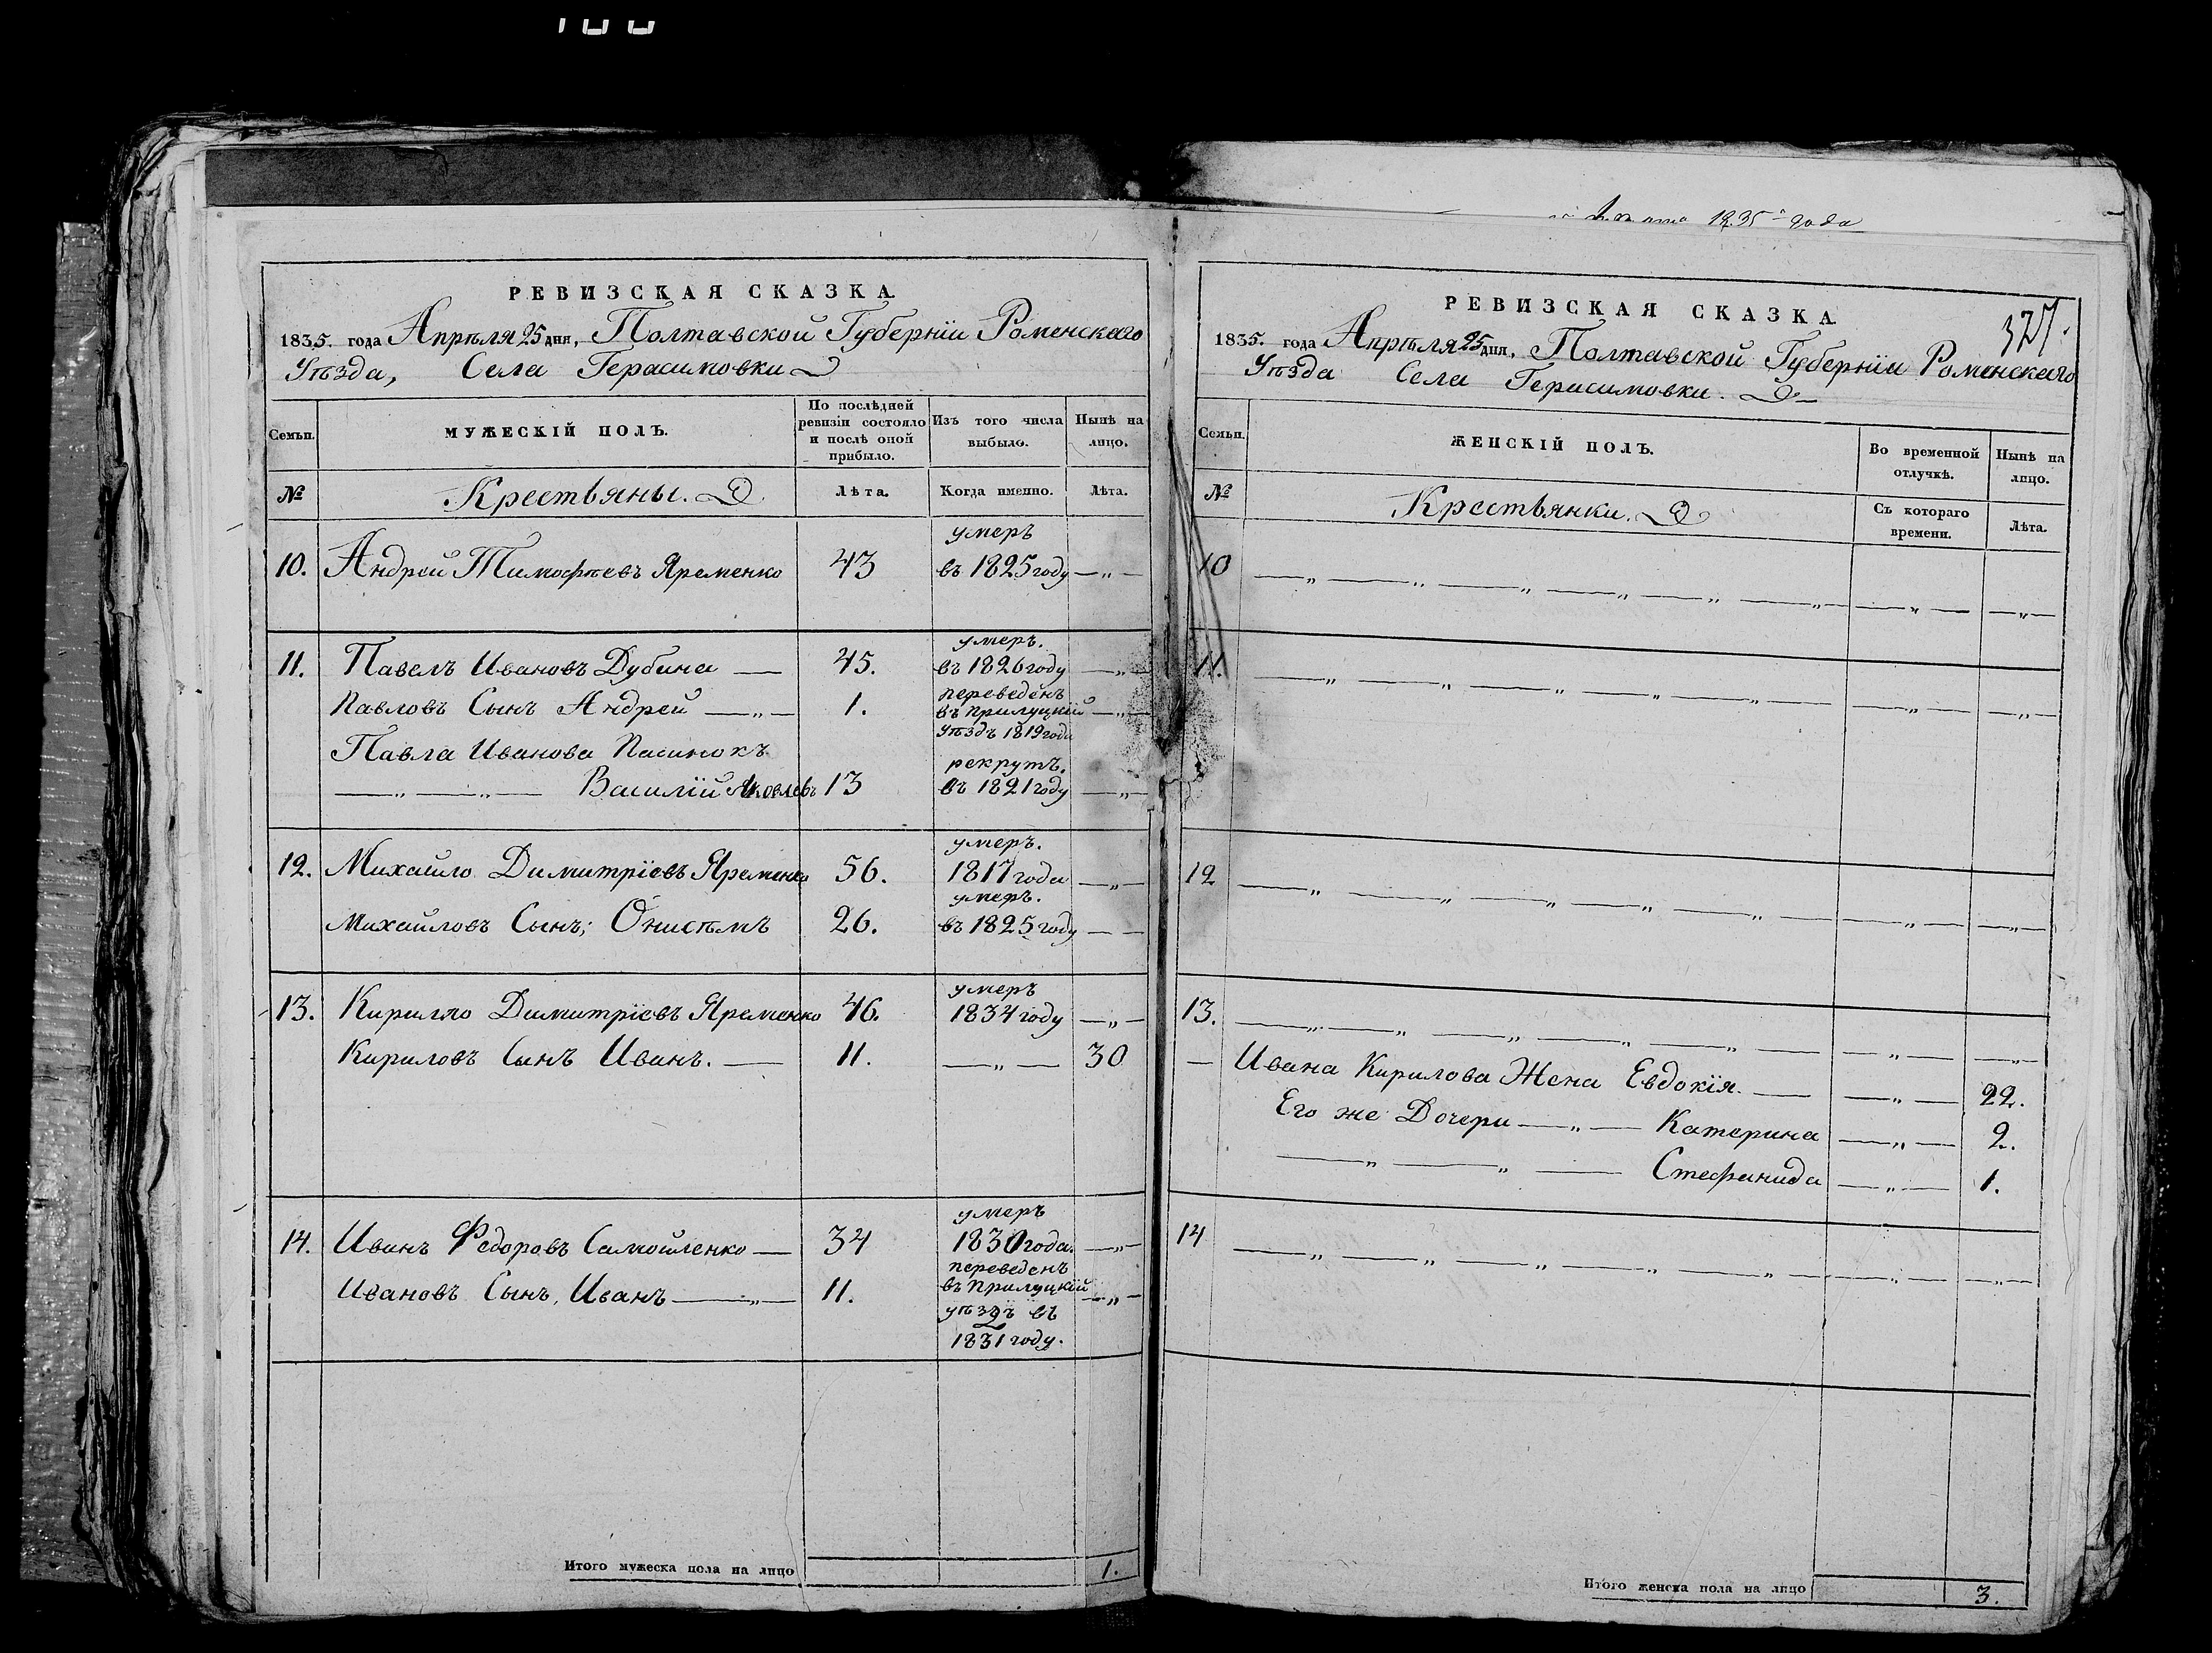 1835 года
РЕВИЗСКАЯ СКАЗКА
1835. года Апрѣля 25 дня, Полтавской Губернїи Роменскаго
Уѣзда, Села Герасимовки
Семьи.
МУЖЕСКІЙ ПОЛЪ.
По послѣдней
ревизіи состояло
и послѣ оной
прибыло.
Изъ того числа
выбыло.
Нынѣ на
лицо.
№
Крестьяны.
Лѣта.
Когда именно.
Лѣта.
умеръ
10. Андрей Тимофѣевъ Яременко 43 въ 1825 году —„—
умеръ.
11. Павелъ Ивановъ Дубина — 45. въ 1826 году —„—
Павловъ Сынъ Андрей —„— 1. переведенъ
въ Прилуцкїй —„—
Уѣздъ 1819 года
Павла Иванова Пасинокъ
рекрутъ.
—„—„— Василїй Яковлевъ 13 въ 1821 году —„—
умеръ.
12. Михайло Димитрїевъ Яременко 56. 1817 года —„—
умеръ.
Михайловъ Сынъ; Онисѣмъ 26. въ 1825 году — —
умеръ
13. Кирилло Димитрїевъ Яременко 46. 1834 году —„—
Кириловъ Сынъ Иванъ. — 11. —„— 30
умеръ
14. Иванъ Федоровъ Самойленко — 34 1830 года. —„—
переведенъ
Ивановъ Сынъ, Иванъ —„— 11. въ Прилуцкїй —„—
уѣздъ въ
1831 году.
Итого мужеска пола на лицо 1.
РЕВИЗСКАЯ СКАЗКА
327.
1835. года Апрѣля 25 дня, Полтавской Губернїи Роменскаго
Уѣзда Села Герасимовки.
Семьи.
ЖЕНСКІЙ ПОЛЪ.
Во временной
отлучкѣ.
Нынѣ на
лицо.
№
Крестьянки.
Съ котораго
времени.
Лѣта.
10 —„—„—„—„—„—„— —„— —„—
11. —„—„—„—„—„— —„— —„—
12 —„—„—„—„—„— —„— —„—
13. —„—„—„—„—„— —„— —„—
— Ивана Кирилова Жена Евдокїя. — —„— 22.
Его же Дочери —„— Катерина —„— 2.
—„—„— Стефанида —„— 1.
14 —„—„—„—„—„— —„— —„—
Итого женска пола на лицо 3.